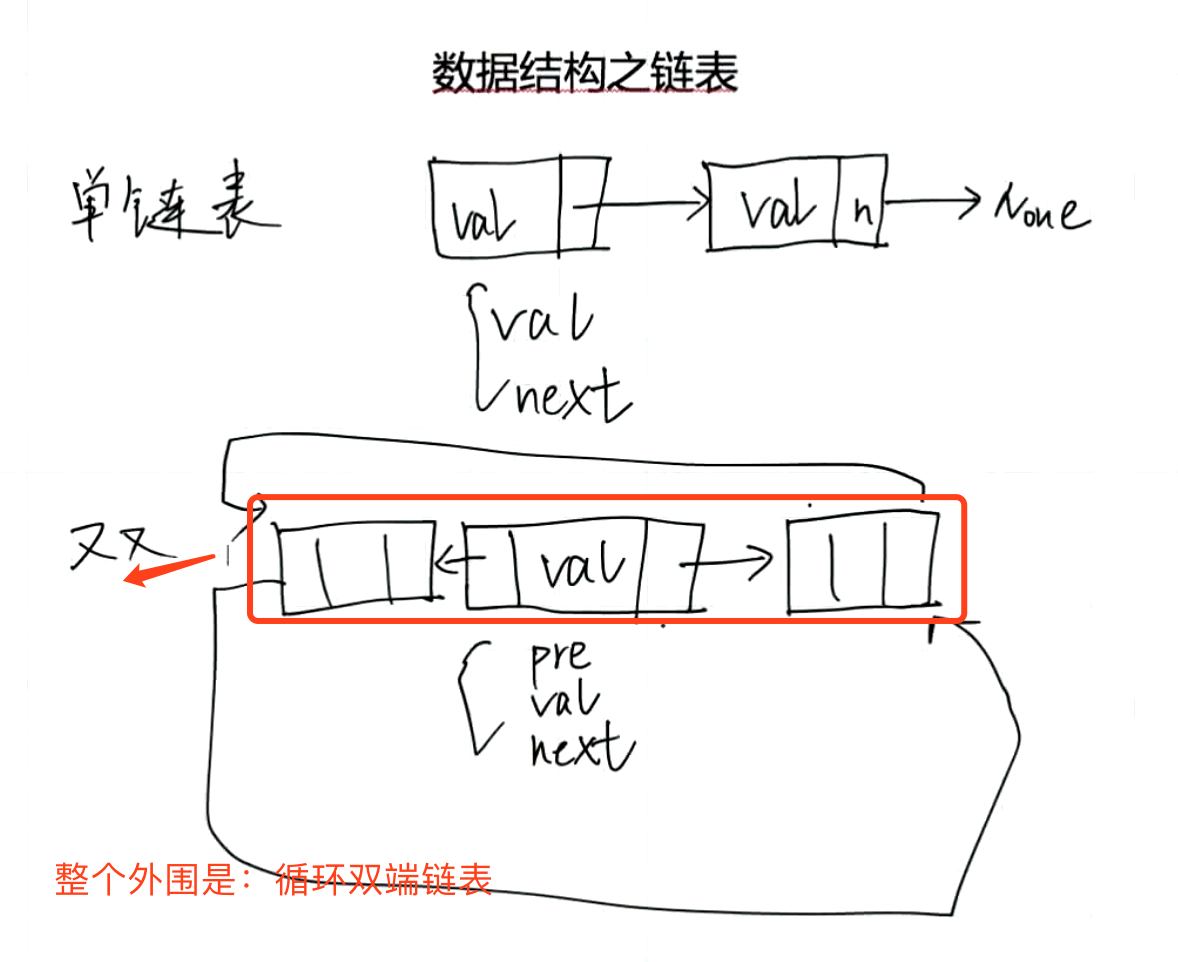 数据结构之链表
单链表
val
val n
None
val
next
双
val
pre
val
next
整个外围是：循环双端链表